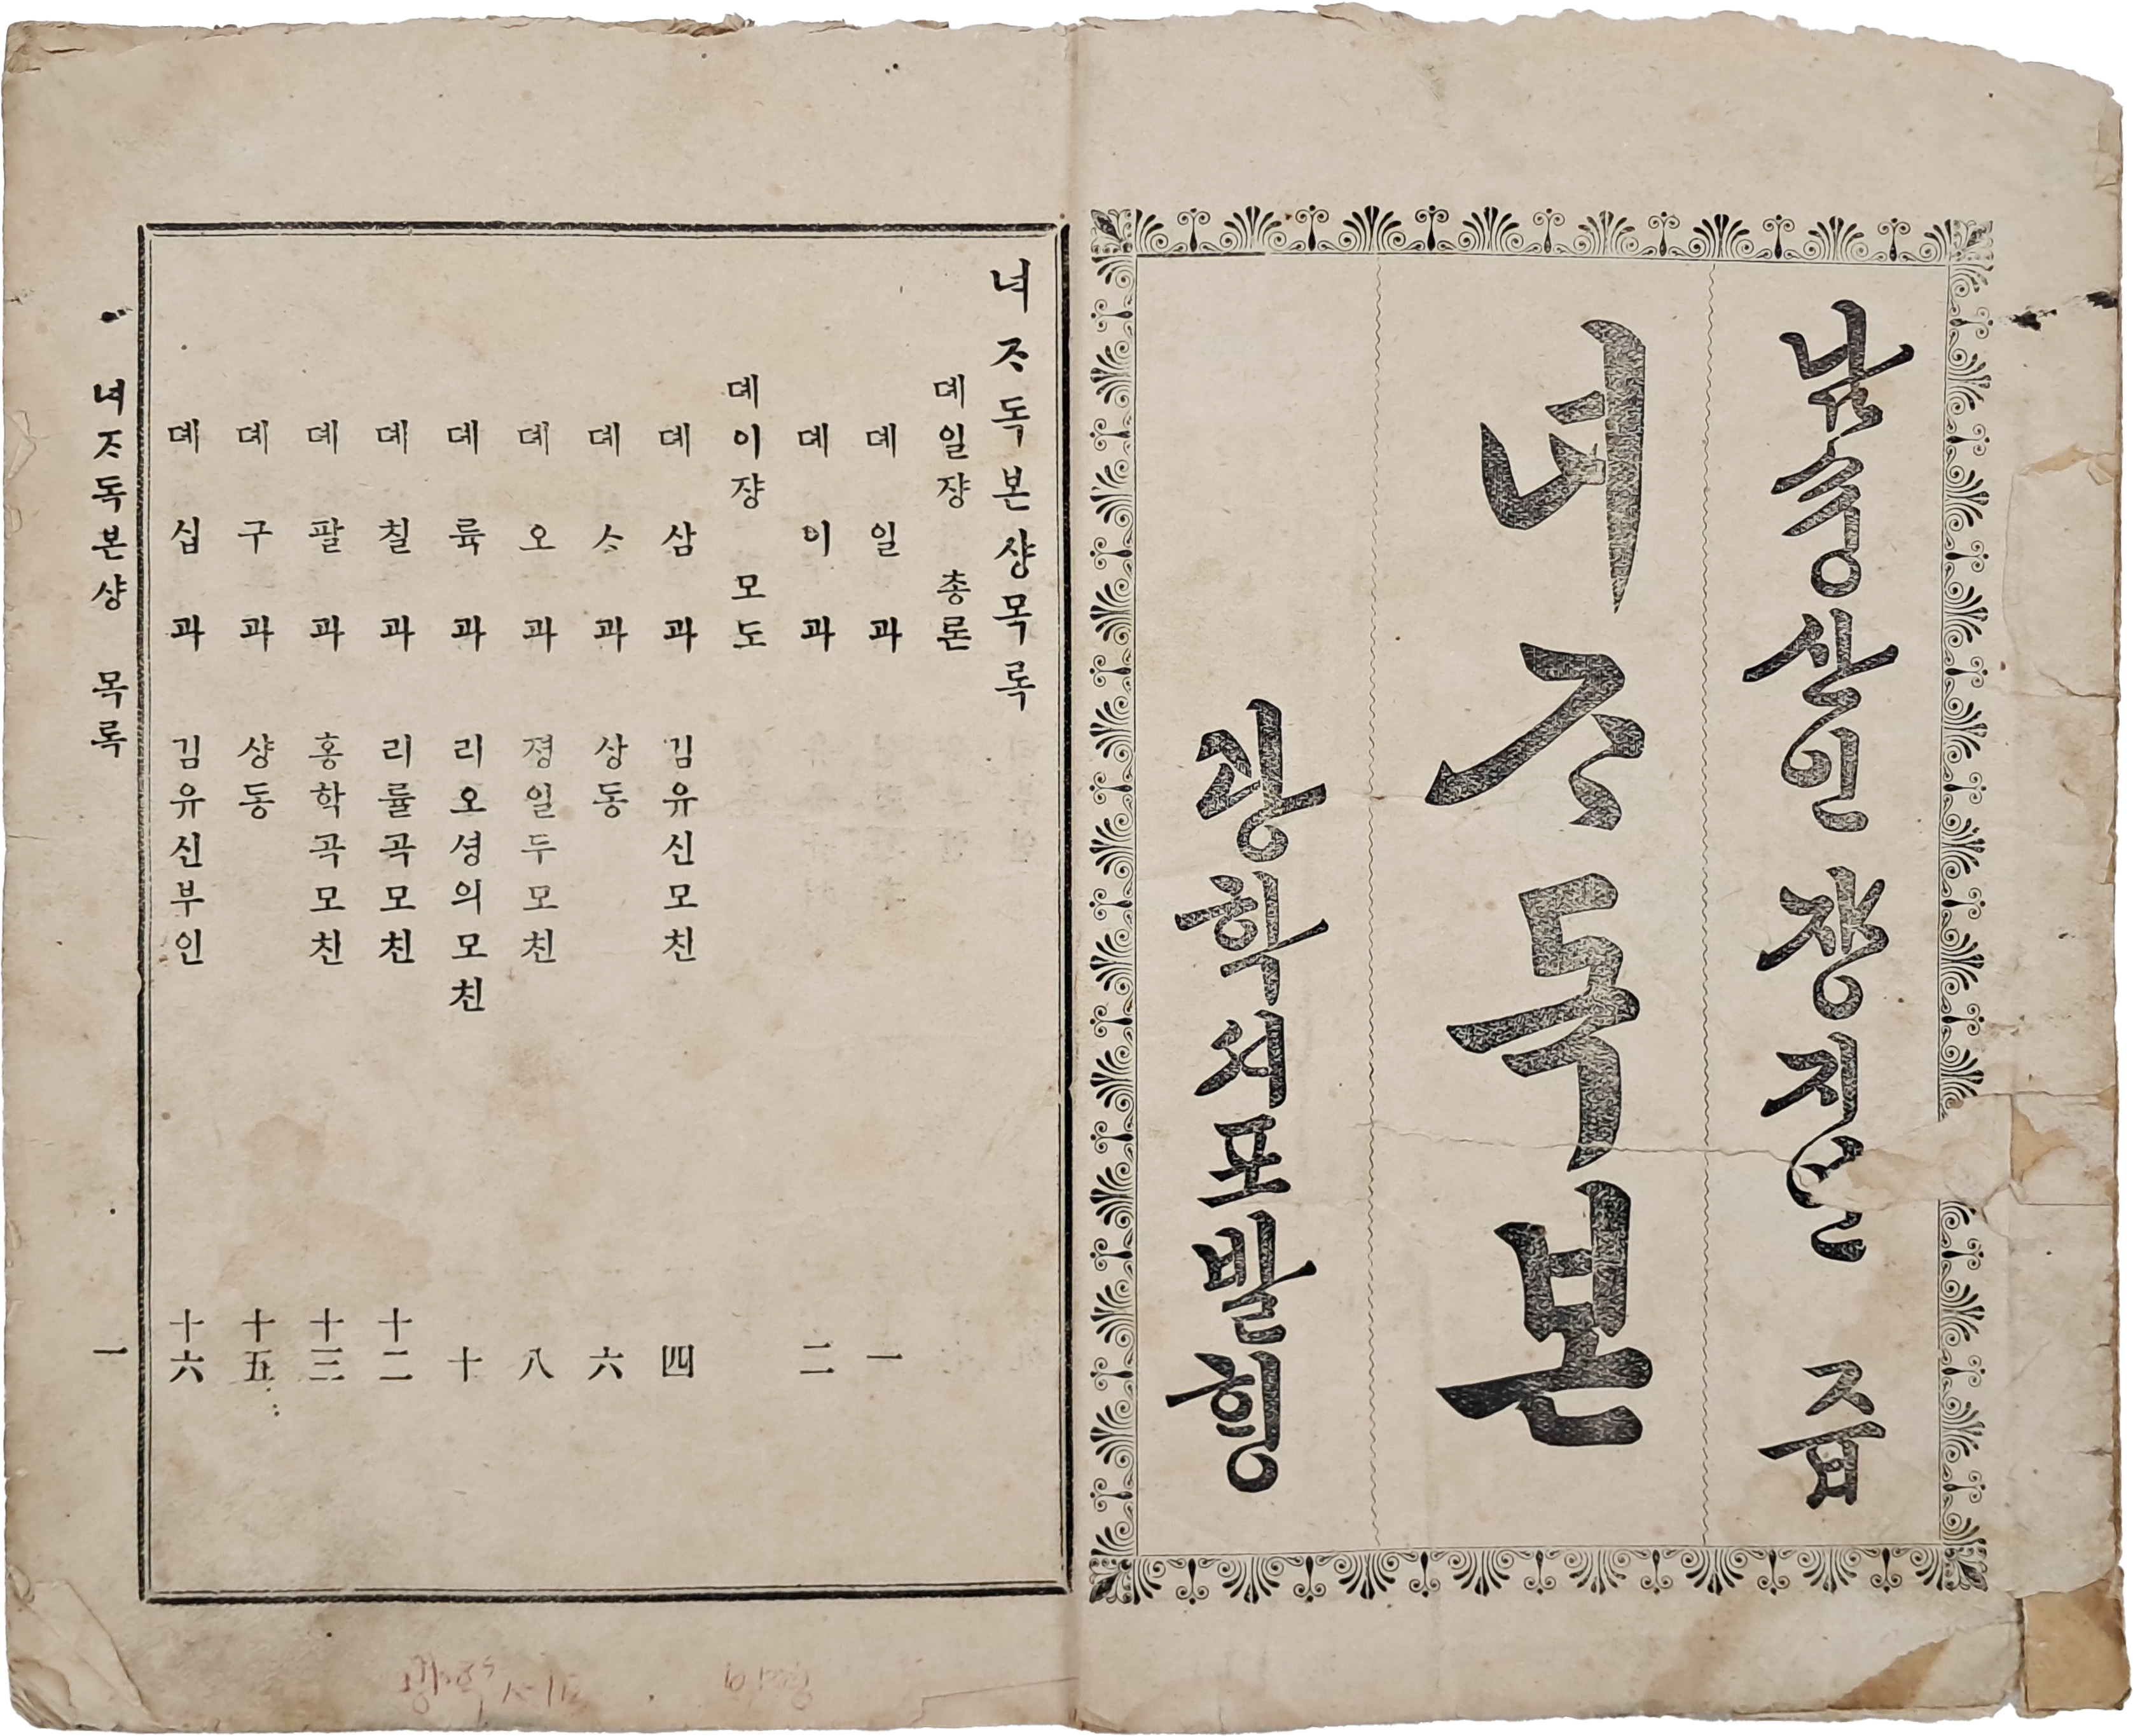 남숭산인 쟝지연 즙
녀ᄌᆞ독본
광학셔포발ᄒᆡᆼ
녀ᄌᆞ독본샹목록
뎨일쟝 총론
뎨일과 一
뎨이과 二
뎨이쟝 모도
뎨삼과 김유신모친 四
뎨ᄉᆞ과 상동 六
뎨오과 졍일두모친 八
뎨륙과 리오셩의모친 十
뎨칠과 리률곡모친 十二
뎨팔과 홍학곡모친 十三
뎨구과 샹동 十五
뎨십과 김유신부인 十六
녀ᄌᆞ독본샹 목록 一